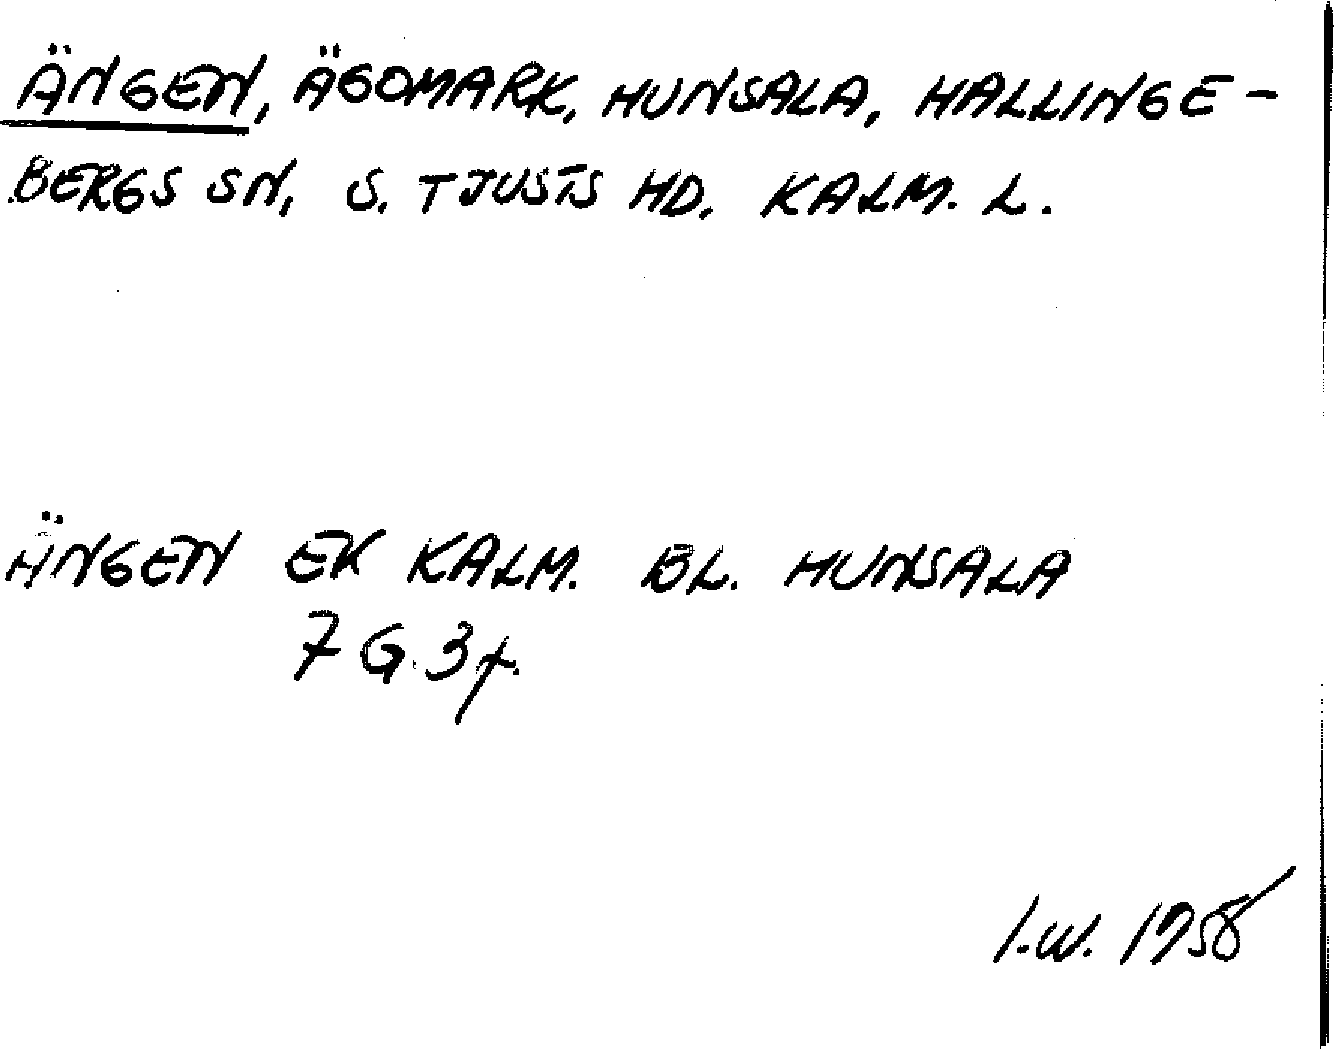 ÄNGEN, ÄGOMARK, HUNSALA, HALLINGE-
BERGS SN, S. TJUSTS HD. KALM. L.
ÄNGEN EK KALM. BL. HUNSALA
7 G. 3 f.
I.W. 1958